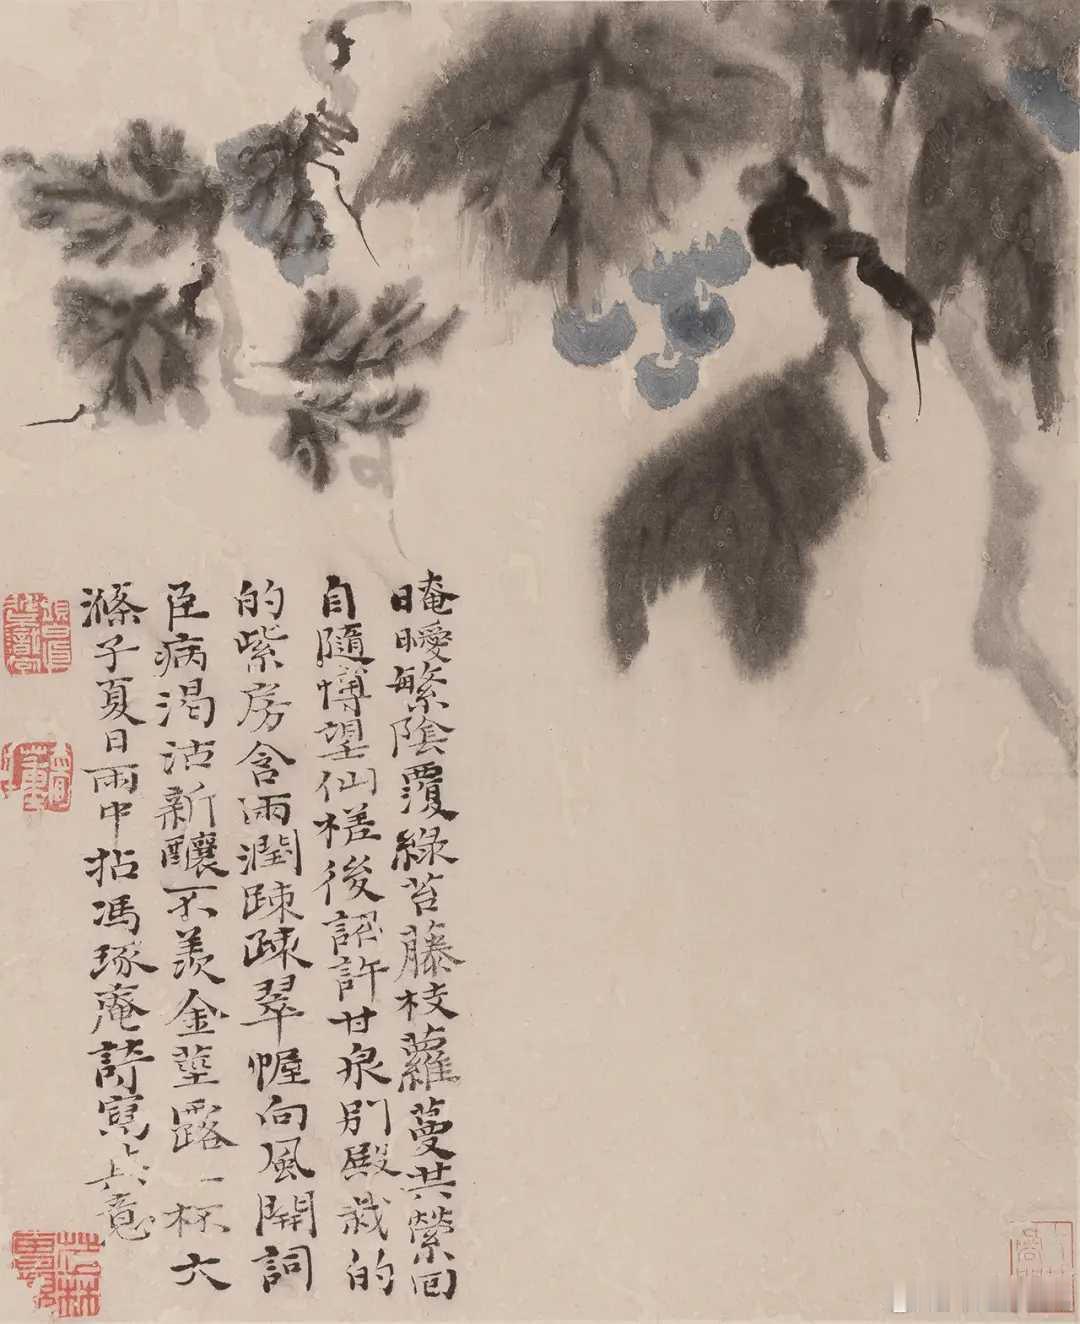 晻曖繁陰覆綠苔藤枝蘿蔓共縈回
自隨博望仙槎後詔許甘泉別殿栽的
的紫房含雨潤疎疎翠幄向風開詞
臣病渴沾新釀不羨金莖露一杯大
滌子夏日雨中拈馮琢庵詩寫其意